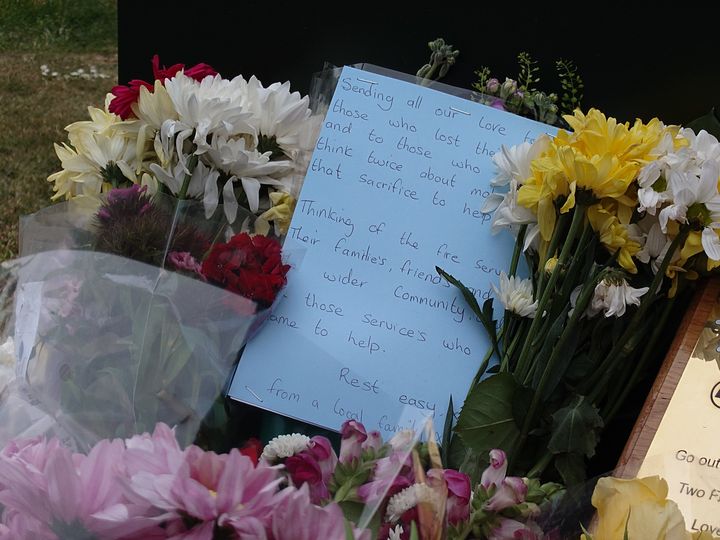 Sending all our love to
those who lost the
and to those who
think twice about
that sacrifice to help
Thinking of the fire
Their families, friends and
wider community.
those service's who
to help.
Rest easy
from a local
Go out
Two
Love